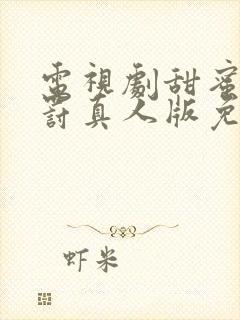 電視劇甜蜜
討真人版免
虾米